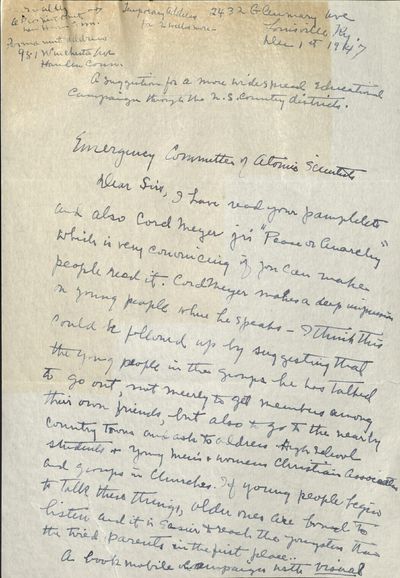 Temporary address
for 2 weeks or so
2432 Glenmary Ave
Louisville, Ky.
Dec 1st 1947
Permanent address
951 Whitney Ave
Hamden Conn.
A suggestion for a more widespread educational
Campaign through the U.S. Country districts.
Emergency Committee of Atomic Scientists
Dear Sirs, I have read your pamphlets
and also Cord Meyer jr's "Peace or Anarchy"
which is very convincing if you can make
people read it. Cord Meyer makes a deep impression
on young people when he speaks – I think this
could be followed up by suggesting that
the young people in the groups he has talked
to go out, not merely to get members among
their own friends, but also to go to the nearby
country towns and ask to address High School
students & Young Men's & Womens Christian Associations
and groups in Churches. If young people begin
to talk these things, older ones are bound to
listen and it is easier to reach the youngsters than
the tired parents in the first place.
A bookmobile campaign with visual